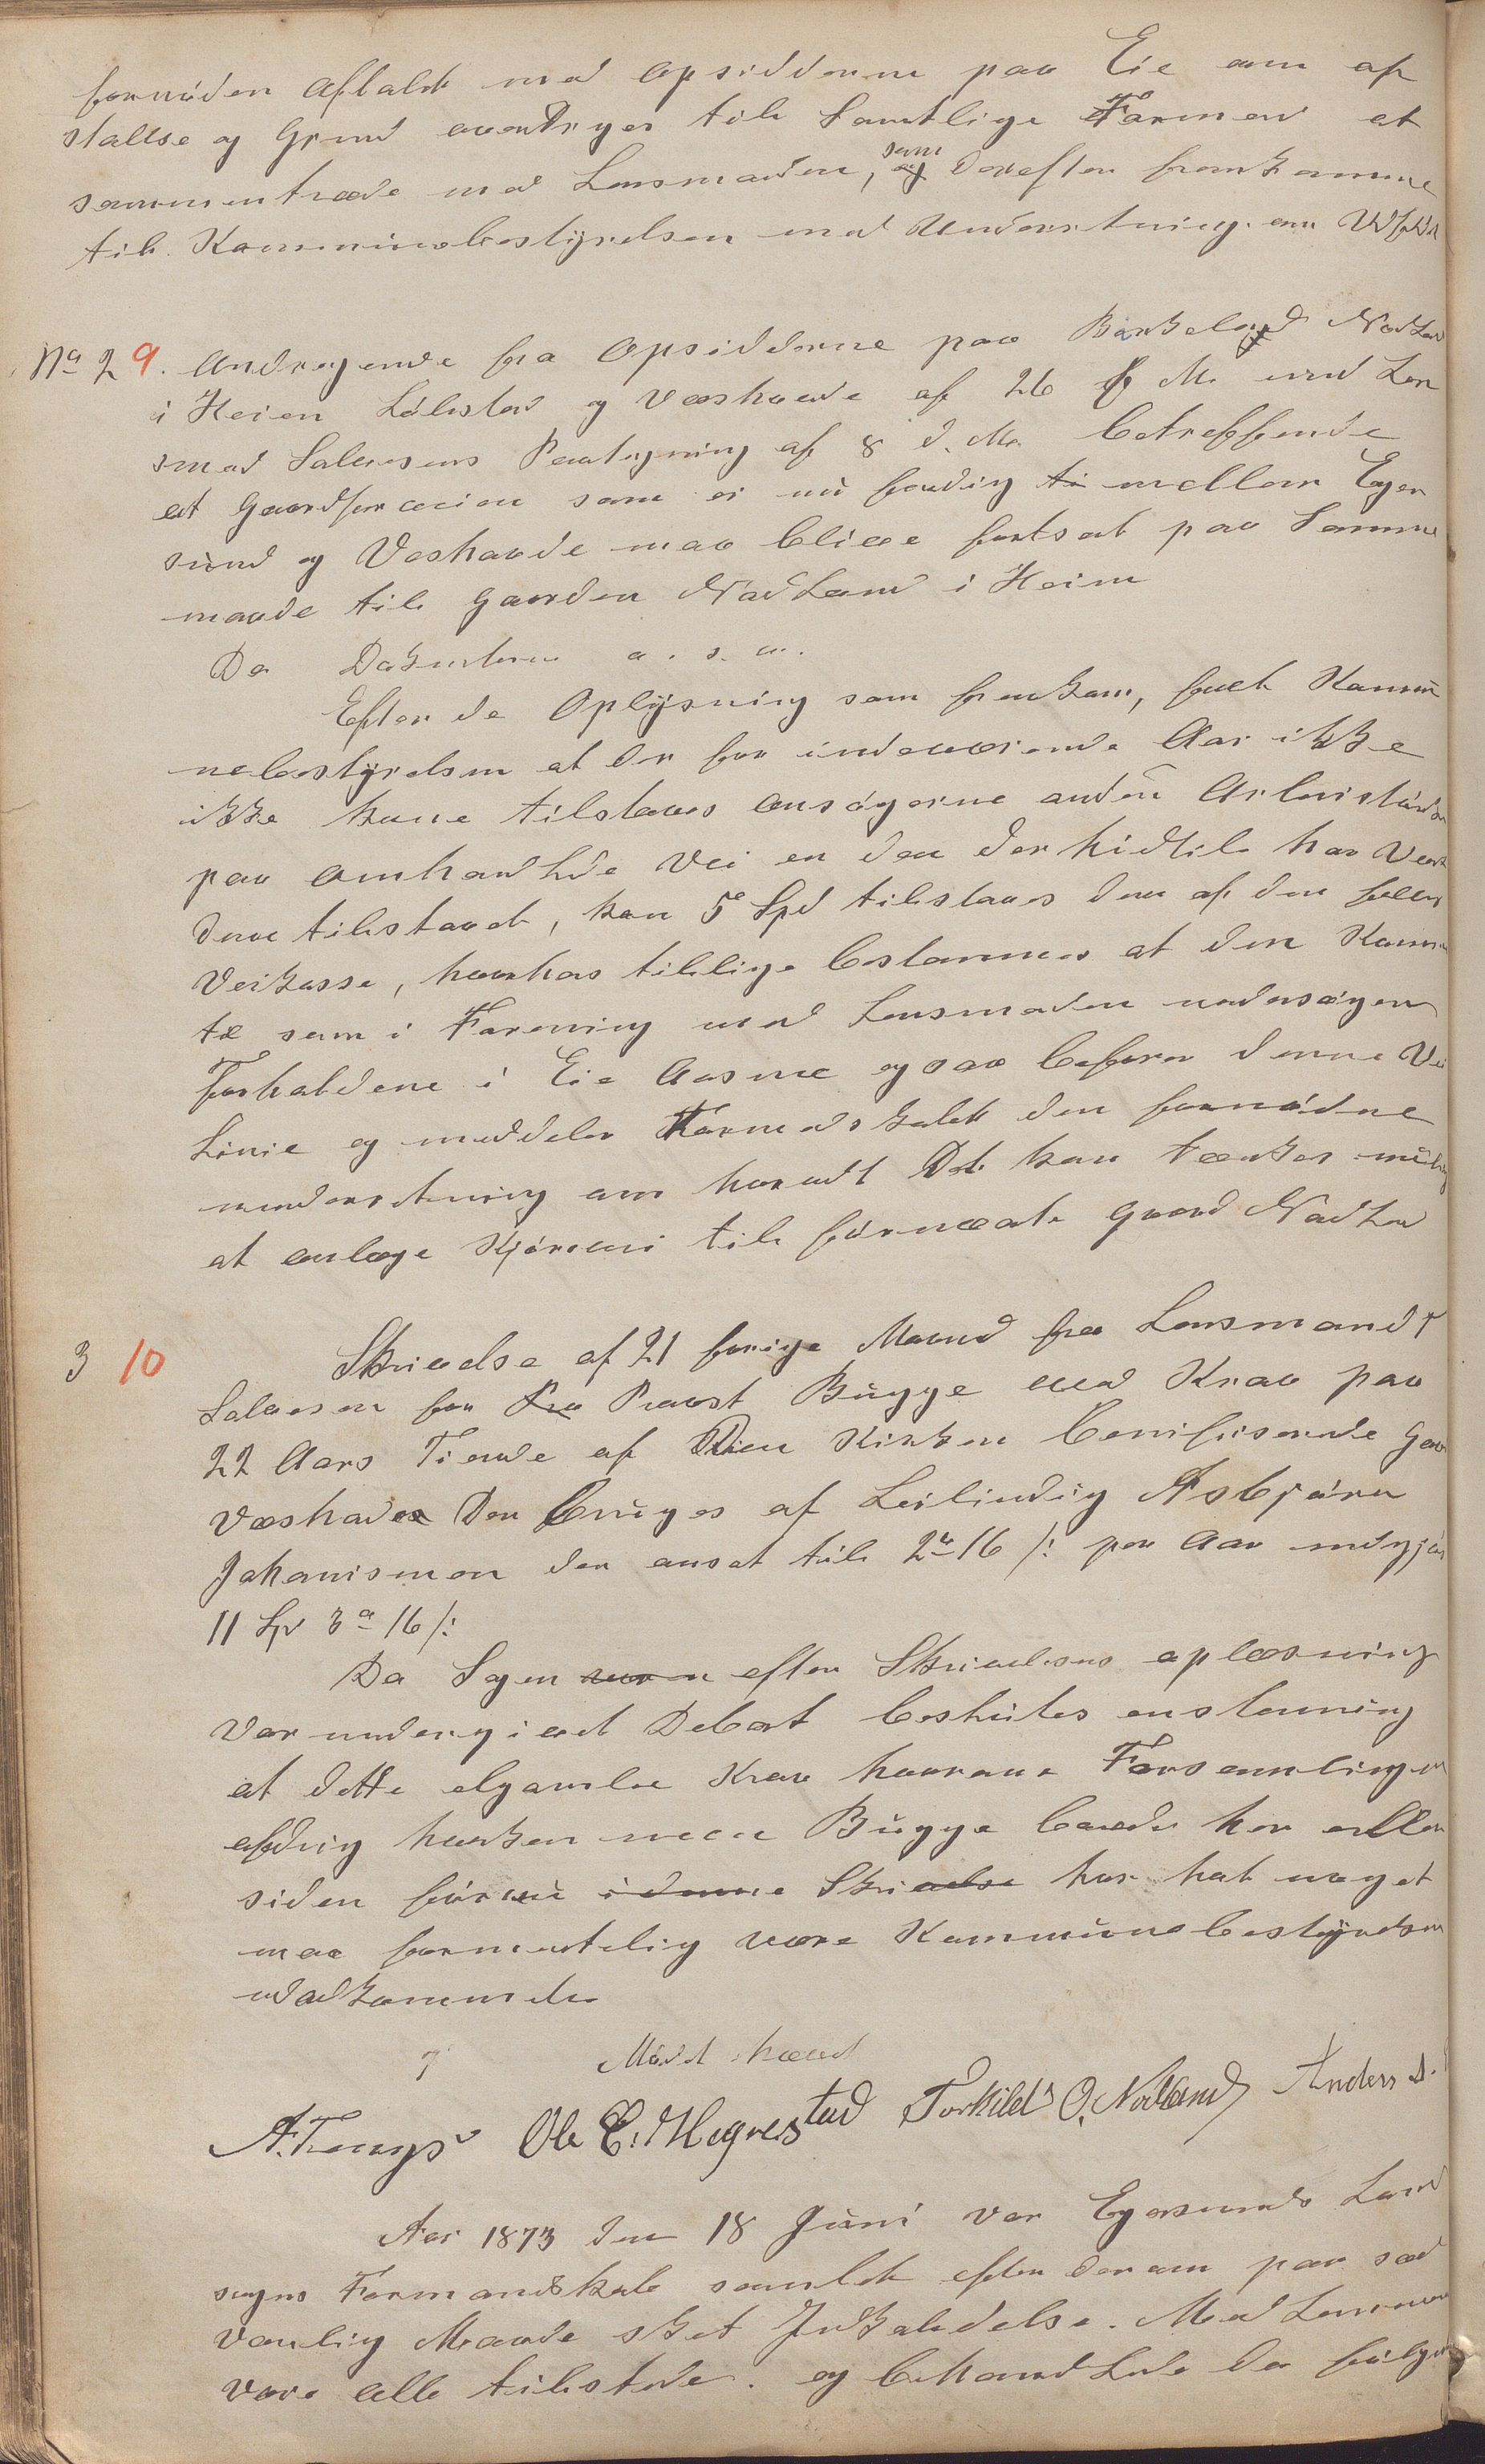 fornøden aftalt med Opsidderne paa Eie om af
staalse og Grund overdrges till Samtlige Formend at
sammentræde med Lensmaden, som derefter fremkomme
till Kommunebestyrelsen med Underretning om Udfald
No 2 9. Andragende fra Opsidderne paa Birkeland Nodland
i Heien Lølestad og Væshavde af 26 f M. med Len
smad Salvesens Paategning af 8 d. M. betreffende
at Gaardsveien som er nu færdig mellem Eger
sund og Veshavde maa blive fortsat paa Samme
maade till Gaarden Nadland i Heien
Da Dokumterne o. s. v.
Efter de Oplysning som fremkom, fant Kommu
nebestyrelsen at der for indeværende Aar ikke
ikke kune tilstaaes ansøgerne anden Arbeidstid
paa omhandlede Vei en den der hidtil har været
dem tilstaaet, kan 5 Spd tilstaaes dem af den felles
Veikasse, hvorhos tillige bestemmes at den Komi
te som i Forening med Lensmaden undersøger
Forholdene i Eie Aasene ogsaa befarer denne Vei
Linie og meddeler Formadskabet den fornødne
underretning om hvravdt Det kan tænkes mulig
at anlæge Kjørevei till førnævte Gaard Nadland
3 10 Skrivelse af 21 forige Maand fra Lensmand T
Salvesen for Provst Bugge med Krav paa
22 Aars Tiende af Kirken Benifiserede Gaar
Væshavde Der bruges af Leilindig Asbjørn
Johanismen der ansat till 2 16 /: per Aar udgjør
11 Sp 3 16 /:
Da Sagen efter Skrivelsens oplæsning
var undergivet Debat besluttes enstemig
at dette elgamle Krav hvorava Forsamlingen
aldrig hværken med Bugge baade her eller
siden før nu i denne Skrivelse har hat noget
maa formentelig være Kommunebestyrelsen
uvedkommende
Mødet hævet
A. Tengs Ole E. Hegrestad Torkild O. Nodland Anders A.
Aar 1873 den 18 Juni var Egersunds Land
sogns Formandskab samlet efter derom paa sæd
vanlig Maade sket Indkaldelse. Med Lemmer
vare alle tilstede. og behandlede da følgen